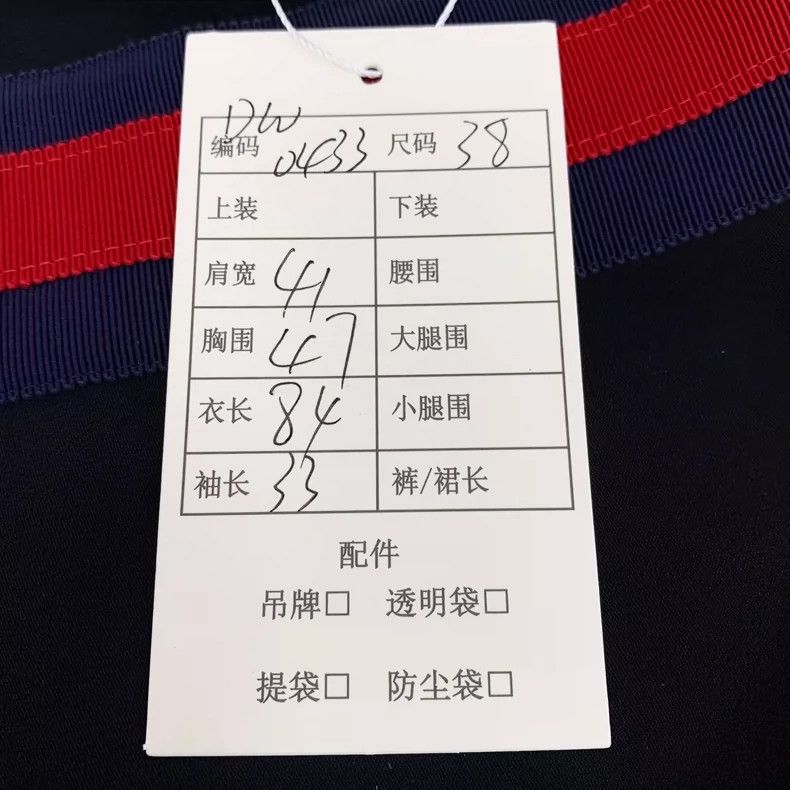 编码 DW 0433 尺码 38
上装 下装
肩宽 41 腰围
胸围 47 大腿围
衣长 84 小腿围
袖长 33 裤/裙长
配件
吊牌□ 透明袋□
提袋□ 防尘袋□